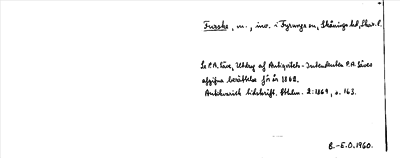 Fursske, m., inv. i Fyrunga sn, Skånings hd, Skar. l.
Se P.A. Säve, Utdrag af Antiqvitets-Intendenten P.A. Säves
afgifna berättelse för år 1862.
Antikvarisk tidskrift. Sthlm. 2:1869, s. 163.
B.-E.O. 1960.